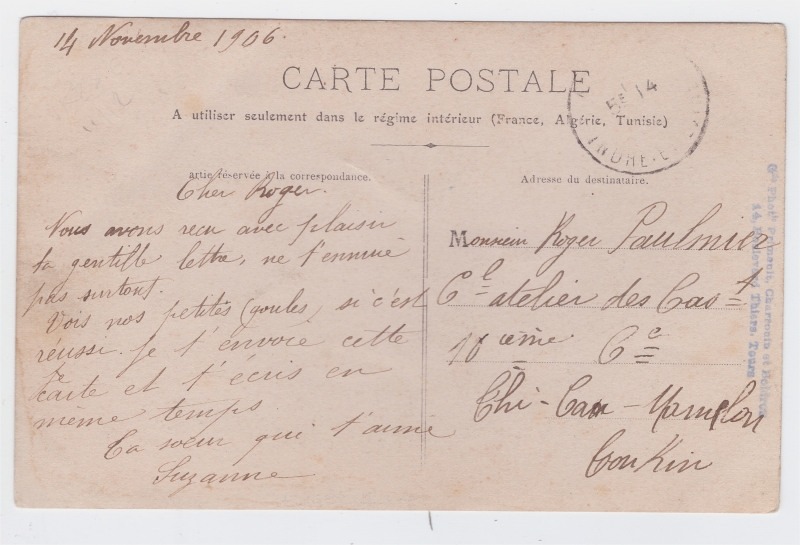 14 Novembre 1906.
CARTE POSTALE
A utiliser seulement dans le régime intérieur (France, Algérie, Tunisie)
5E 14
INDRE-E
artie réservée à la correspondance.
Cher Roger.
Nous avons reçu avec plaisir
ta gentille lettre, ne t'ennuie
pas surtout.
Vois nos petites (goules) si c'est
réussi. Je t'envoie cette
carte et t'écris en
même temps
Ta sœur qui t'aime
Suzanne
Adresse du destinataire.
Monsieur Roger Paulmier
Cl atelier des Cas
10ième Cie
Thi-Cau-Mamelon
Tonkin
Charrosin et
14, Boulevard Thiers, Tours